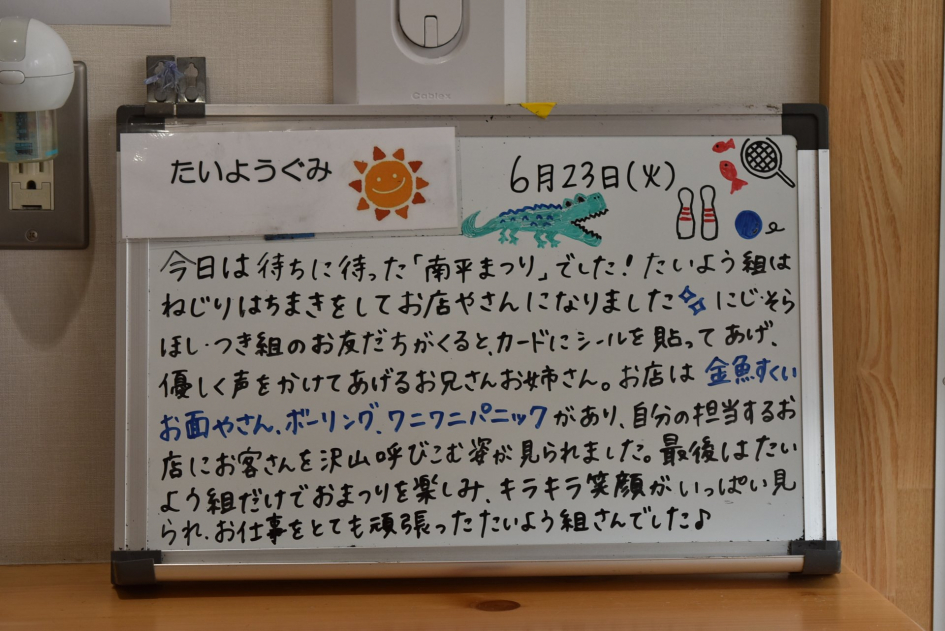 たいようぐみ
6月23日(火)
今日は待ちに待った「南平まつり」でした!たいよう組は
ねじりはちまきをしてお店やさんになりました にじ・そら
ほし・つき組のお友だちがくると、カードにシールを貼ってあげ、
優しく声をかけてあげるお兄さんお姉さん。お店は金魚すくい
お面やさん、ボーリング、ワニワニパニックがあり、自分の担当するお
店にお客さんを沢山呼びこむ姿が見られました。最後はたい
よう組だけでおまつりを楽しみ、キラキラ笑顔がいっぱい見
られ、お仕事をとても頑張ったたいよう組さんでした♪